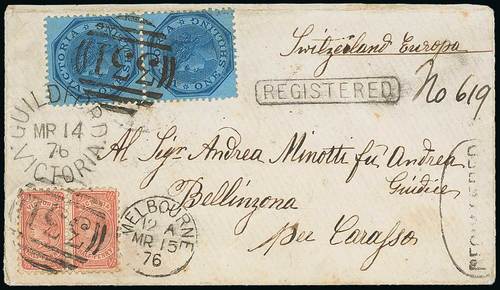 VICTORIA
ONE SHILLING
VICTORIA
ONE SHILLING
Switzerland Europa
REGISTERED
No 619
GUILDFORD
MR 14
76
VICTORIA
Al Sigr Andrea Minotti fu Andrea
Giudice
Bellinzona
per Carasso
MELBOURNE
12 A
MR 15
76